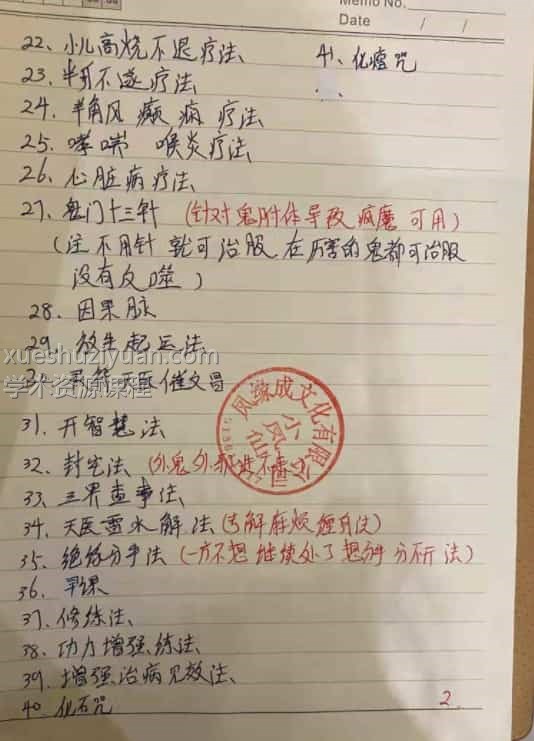 Memo No.
Date / /
22、小儿高烧不退疗法、
41、化瘤咒
23、半身不遂疗法、
24、羊角风 癫痫 疗法、
25、哮喘 喉炎疗法、
26、心脏病疗法、
27、鬼门十三针 (针对鬼附体导致 疯魔 可用)
(注 不用针 就可治服 在厉害的鬼都可治服
没有反噬)
28、因果脉
29、放生起运法
xueshuziyuan.com
学术资源课程
天医催文昌
31、开智慧法
32、封宅法
33、三界查事法、
34、天医灵水解法
35、绝缘分手法 (一方不想继续处了想
36、早课
37、修练法、
38、功力增强练法、
39、增强治病见效法、
40、化石咒
2
凤缘成文化有限公司
小凤仙